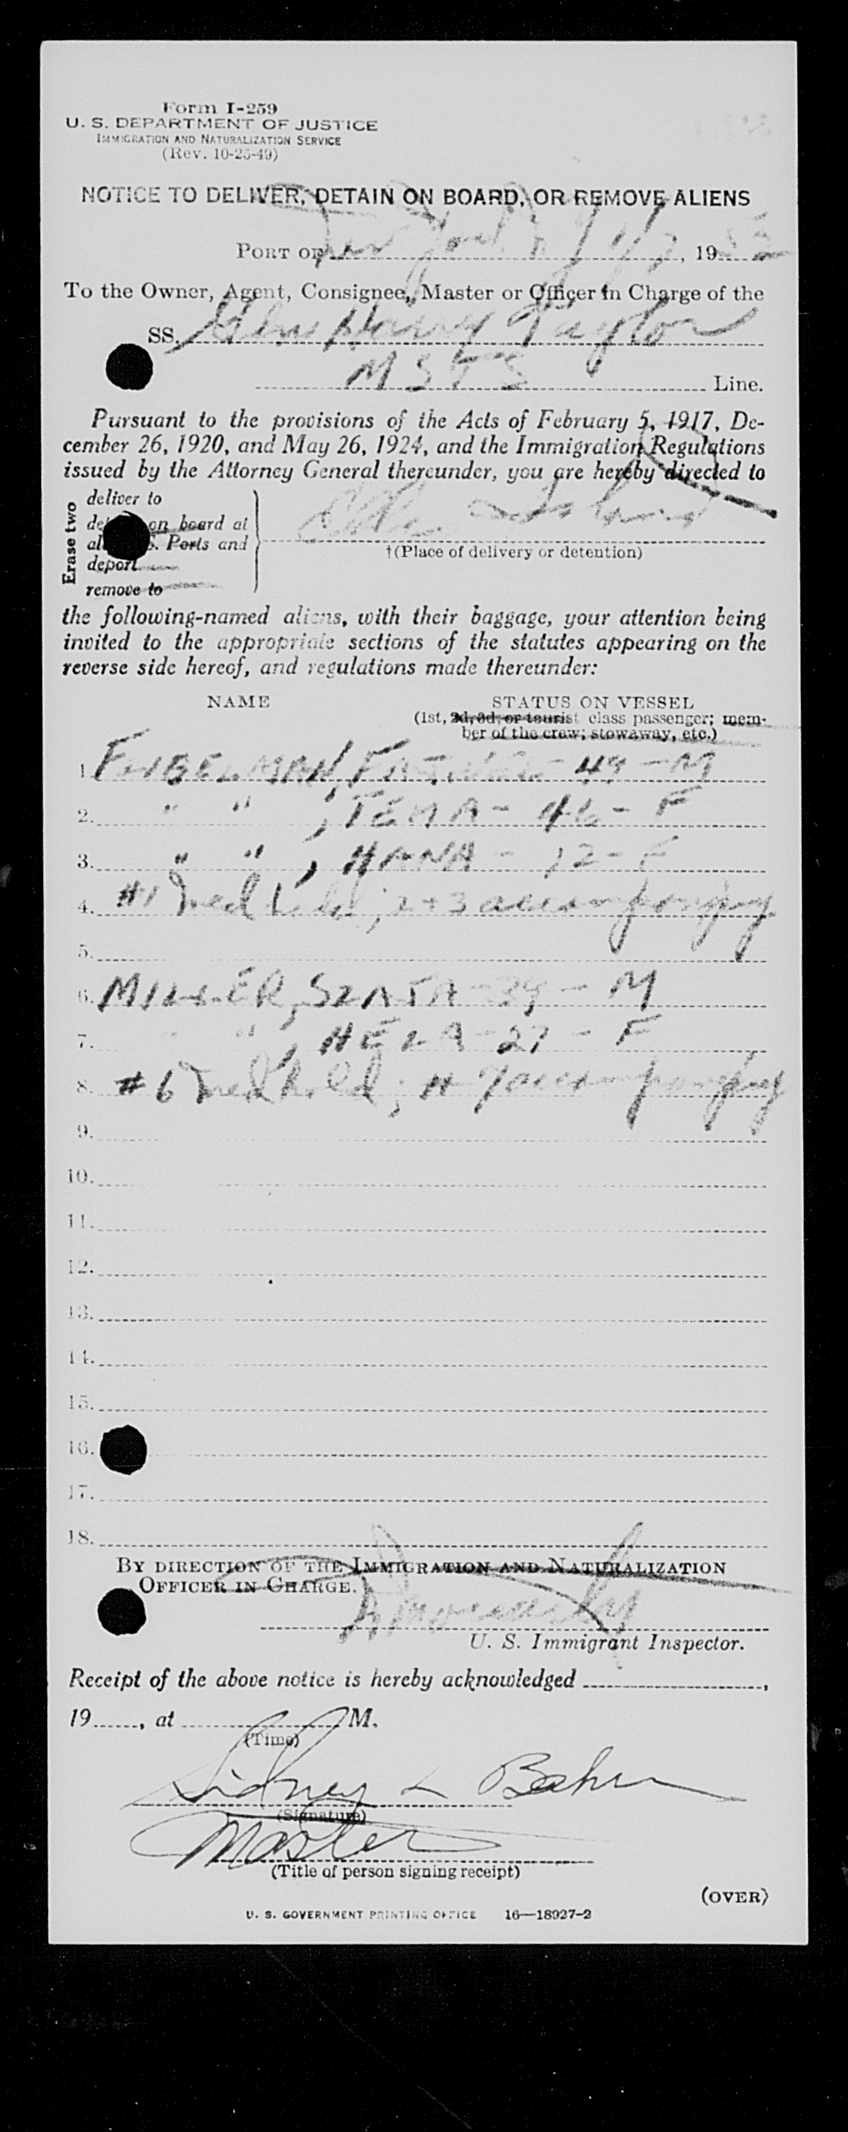 Form I-259
U. S. DEPARTMENT OF JUSTICE
IMMIGRATION AND NATURALIZATION SERVICE
(Rev. 10-25-49)
NOTICE TO DELIVER, DETAIN ON BOARD, OR REMOVE ALIENS
PORT OF New York, 19
To the Owner, Agent, Consignee, Master or Officer in Charge of the
SS. Gen Harry Taylor
MSTS Line.
Pursuant to the provisions of the Acts of February 5, 1917, De-
cember 26, 1920, and May 26, 1924, and the Immigration Regulations
issued by the Attorney General thereunder, you are hereby directed to
Erase two
deliver to
on board at
Ports and
deport
remove to
Ellis Island
†(Place of delivery or detention)
the following-named aliens, with their baggage, your attention being
invited to the appropriate sections of the statutes appearing on the
reverse side hereof, and regulations made thereunder:
NAME STATUS ON VESSEL
(1st, 2d, 3d, or tourist class passenger; mem-
ber of the crew; stowaway, etc.)
1. - 49 - M
2. " " , TEMA - 46 - F
3. " " , HANA - 12 - F
4. #1 Med hold; 2 + 3 accompanying
5.
6. MILLER, - 39 - M
7. " , HELA - 27 - F
8. #6 Med hold; #7 accompanying
9.
10.
11.
12.
13.
14.
15.
16.
17.
18.
BY DIRECTION OF THE IMMIGRATION AND NATURALIZATION
OFFICER IN CHARGE.
U. S. Immigrant Inspector.
Receipt of the above notice is hereby acknowledged ,
19 , at M.
(Time)
Sidney L
(Signature)
Master
(Title of person signing receipt)
(OVER)
U. S. GOVERNMENT PRINTING OFFICE 16—18927-2